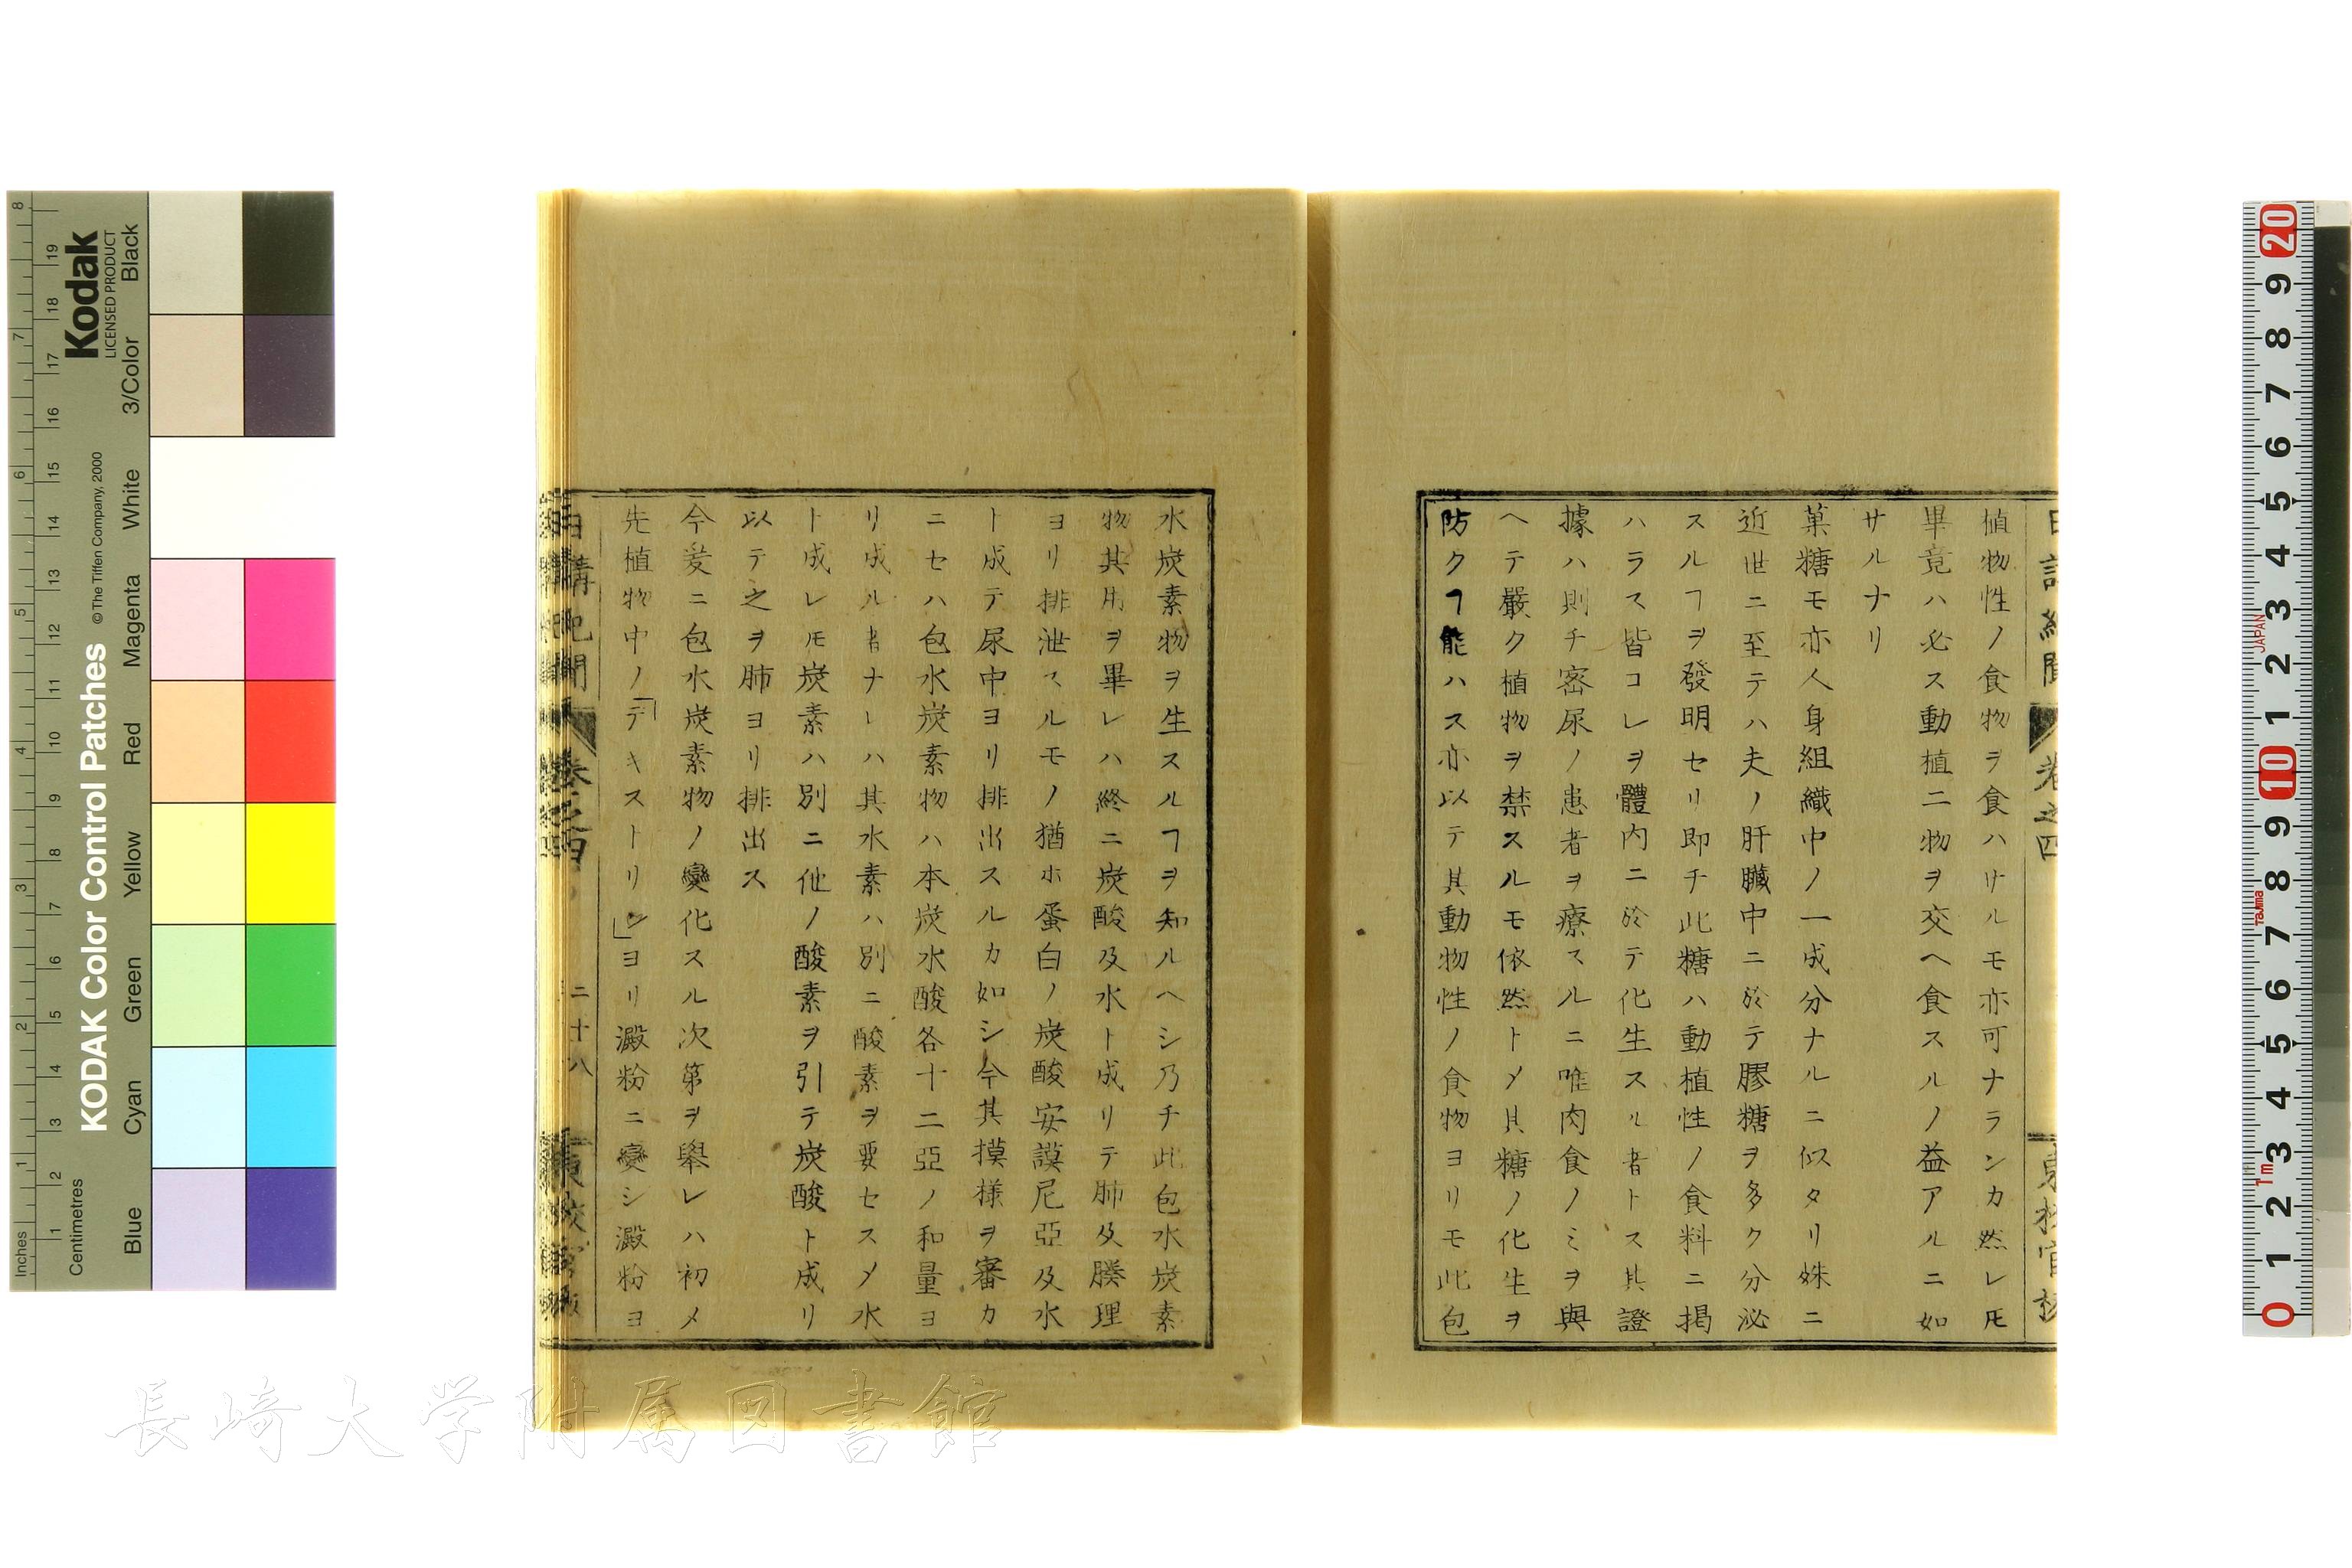 植物性ノ食物ヲ食ハサルモ亦可ナランカ然レ𪜈
畢竟ハ必ス動植二物ヲ交ヘ食スルノ益アルニ如
サルナリ
菓糖モ亦人身組織中ノ一成分ナルニ似タリ姝ニ
近世ニ至テハ夫ノ肝臓中ニ於テ膠糖ヲ多ク分泌
スルヿヲ發明セリ即チ此糖ハ動植性ノ食料ニ掲
ハラス皆コレヲ體内ニ於テ化生スル者トス其證
據ハ則チ密尿ノ患者ヲ療スルニ唯肉食ノミヲ與
ヘテ嚴ク植物ヲ禁スルモ依然トメ其糖ノ化生ヲ
防クヿ能ハス亦以テ其動物性ノ食物ヨリモ此包
水炭素物ヲ生スルヿヲ知ルヘシ乃チ此包水炭素
物其用ヲ畢レハ終ニ炭酸及水ト成リテ肺及腠理
ヨリ排泄スルモノ猶ホ蛋白ノ炭酸安謨尼亞及水
ト成テ尿中ヨリ排出スルカ如シ今其摸様ヲ審カ
ニセハ包水炭素物ハ本炭水酸各十二亞ノ和量ヨ
リ成ル者ナレハ其水素ハ別ニ酸素ヲ要セスメ水
ト成レ𪜈炭素ハ別ニ他ノ酸素ヲ引テ炭酸ト成リ
以テ之ヲ肺ヨリ排出ス
今爰ニ包水炭素物ノ變化スル次第ヲ擧レハ初メ
先植物中ノ「デキストリン」ヨリ澱粉ニ變シ澱粉ヨ
二十八
Kodak
LICENSED PRODUCT
KODAK Color Control Patches
© The Tiffen Company, 2000
Inches
Centimetres
Blue
Cyan
Green
Yellow
Red
Magenta
White
3/Color
Black
JAPAN
Tajima
1m
長崎大学附属図書館